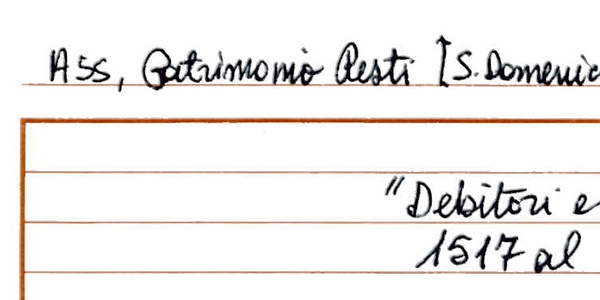 ASS, Patrimonio Resti [S. Domenic
"Debitori e
1517 al